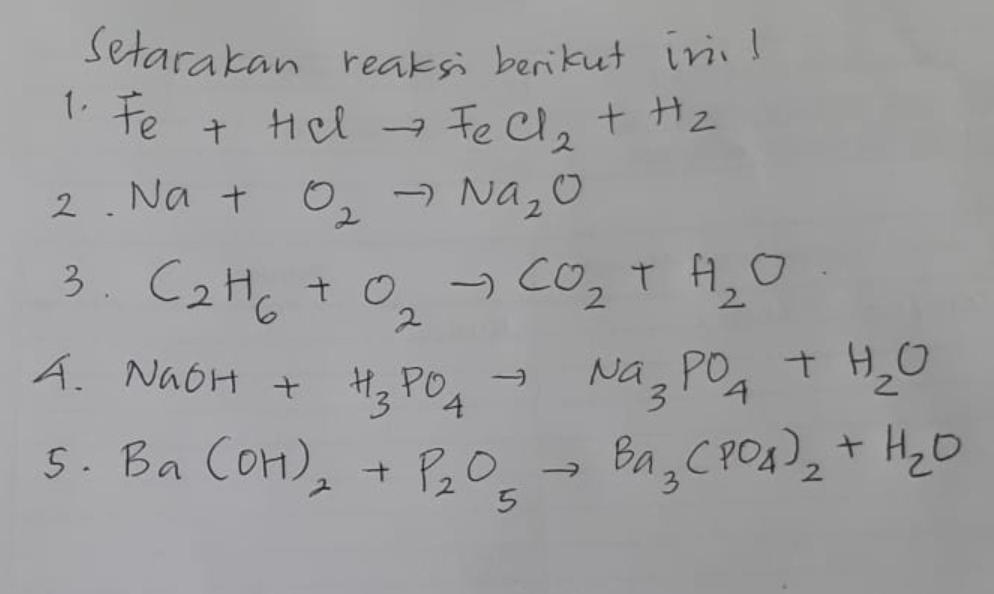 Setarakan reaksi berikut ini!
1. Fe + HCl → FeCl₂ + H₂
2. Na + O₂ → Na₂O
3. C₂H₆ + O₂ → CO₂ + H₂O.
4. NaOH + H₃PO₄ → Na₃PO₄ + H₂O
5. Ba(OH)₂ + P₂O₅ → Ba₃(PO₄)₂ + H₂O